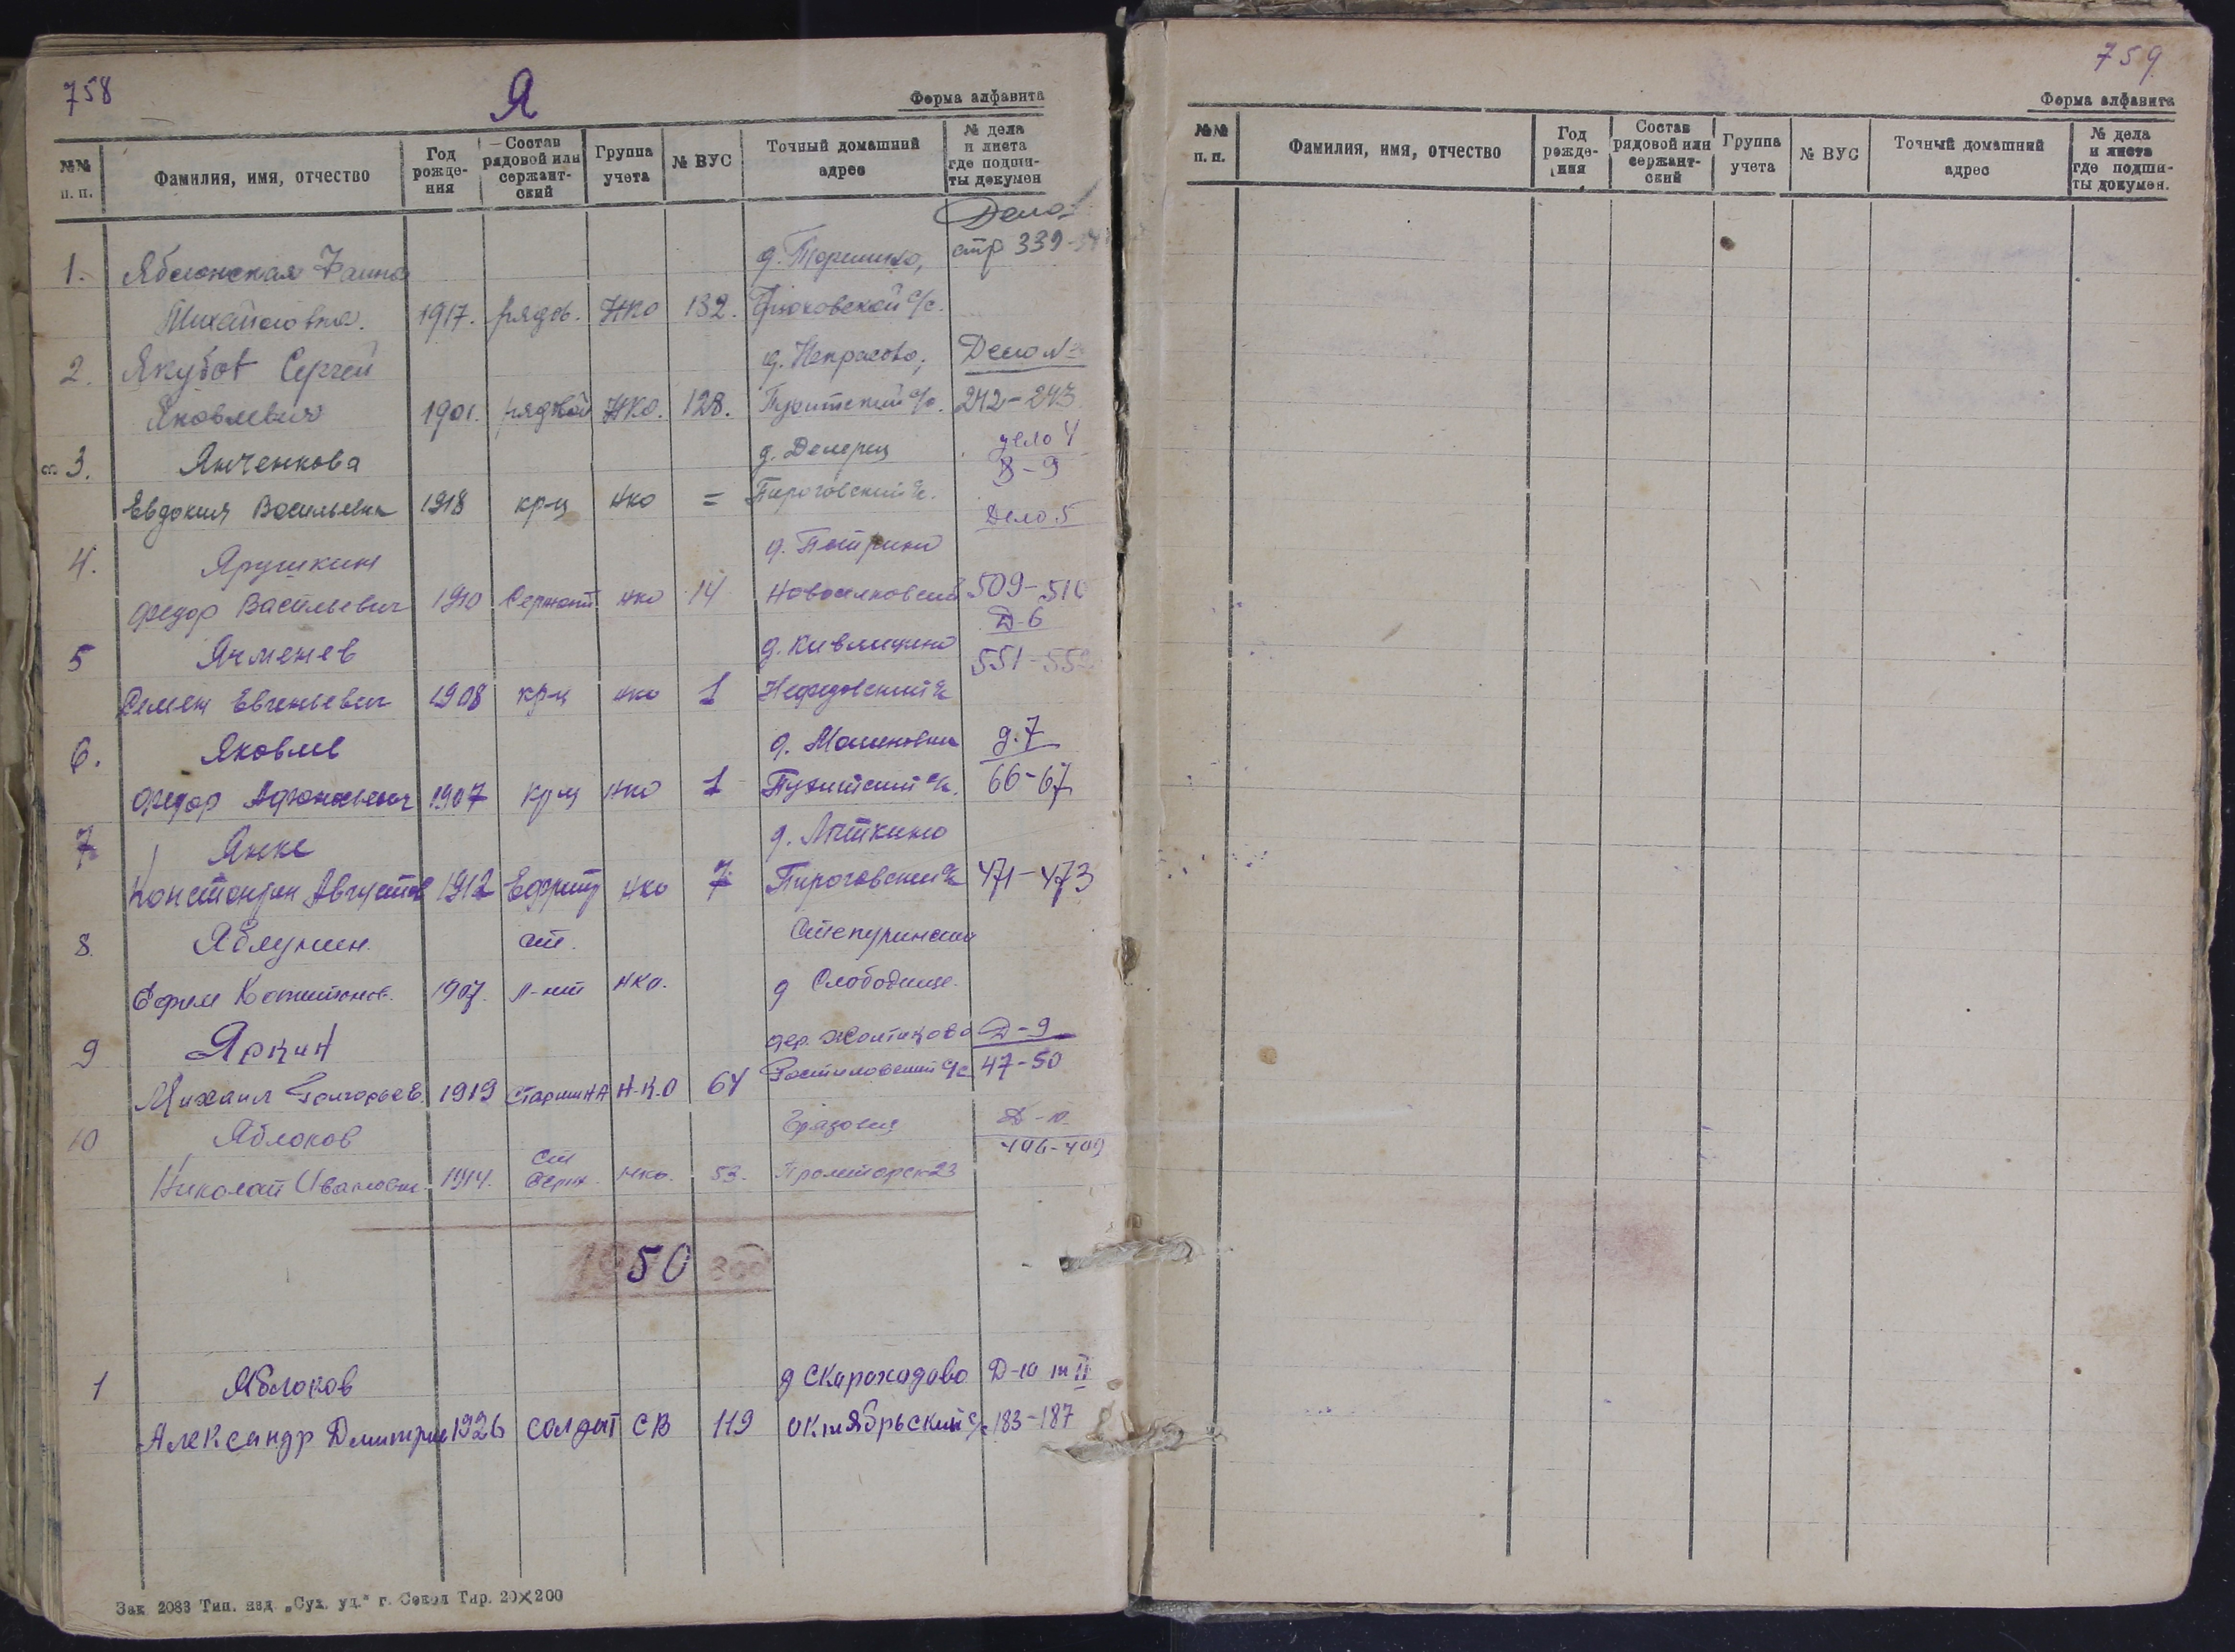 758
Я
Форма алфавита
№№ п. п.
Фамилия, имя, отчество
Год рожде-ния
Состав рядовой или сержант-ский
Группа учета
№ ВУС
Точный домашний адрес
№ дела и листа где подши-ты докумен
Дело
1. Яблонская Фаина д. стр 339-
Михайловна. 1917. рядов. НКО 132. с/с.
2. Якубов Сергей д. Некрасово, Дело №
Яковлевич 1901. рядвой НКО. 128. с/с. 242-243
3. Янченкова д. дело 4
8-9
Евдокия Васильевна 1918 кр-ц нко = Пироговский с/с.
Дело 5
4. Ярушкин д. Петрино
Федор Васильевич 1910 Сержант нко 14 509-510
Д 6
5 Ячменев д. 551-552
Семен Евгеньевич 1908 кр-ц нко 1 Нефедовский с/с
6. Яковлев д. Малиновка д. 7
Федор Афанасьевич 1907 кр-ц нко 1 с/с. 66-67
7 Янке д. Лыткино
Константин Августов 1912 нко 7 Пироговский с/с 471-473
8. ст. Степуринский
Ефим 1907. л-нт нко. д Слободище.
9 Яркин дер. Жолтиково Д-9
Михаил Григорьев. 1919 старшина Н.К.О 64 с/с 47-50
10 Яблоков Грязовец Д-10
406-409
Ст
Николай Иванович. 1914. Серж. нко. 53. Пролетарск 23
1950
1 Яблоков д Скарохадово Д-10 т II
Александр Дмитрие 1926 солдат СВ 119 октябрьский с/с 183-187
Зак 2083 Тип. изд „Сух. уд.“ г. Сокол Тир. 20×200
759
Форма алфавита
№№ п. п.
Фамилия, имя, отчество
Год рожде-ния
Состав рядовой или сержант-ский
Группа учета
№ ВУС
Точный домашний адрес
№ дела и листа где подши-ты докумен.